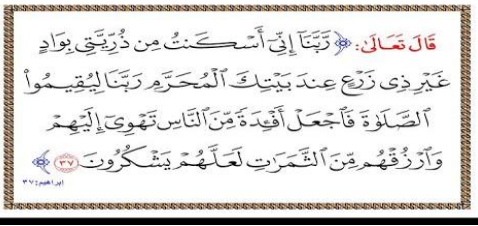 قَالَ تَعَالَىٰ: ﴿ رَّبَّنَا إِنِّي أَسْكَنتُ مِن ذُرِّيَّتِي بِوَادٍ
غَيْرِ ذِي زَرْعٍ عِندَ بَيْتِكَ ٱلْمُحَرَّمِ رَبَّنَا لِيُقِيمُوا۟
ٱلصَّلَوٰةَ فَٱجْعَلْ أَفْـِٔدَةً مِّنَ ٱلنَّاسِ تَهْوِىٓ إِلَيْهِمْ
وَٱرْزُقْهُم مِّنَ ٱلثَّمَرَٰتِ لَعَلَّهُمْ يَشْكُرُونَ ٣٧ ﴾
ابراهيم: ٣٧